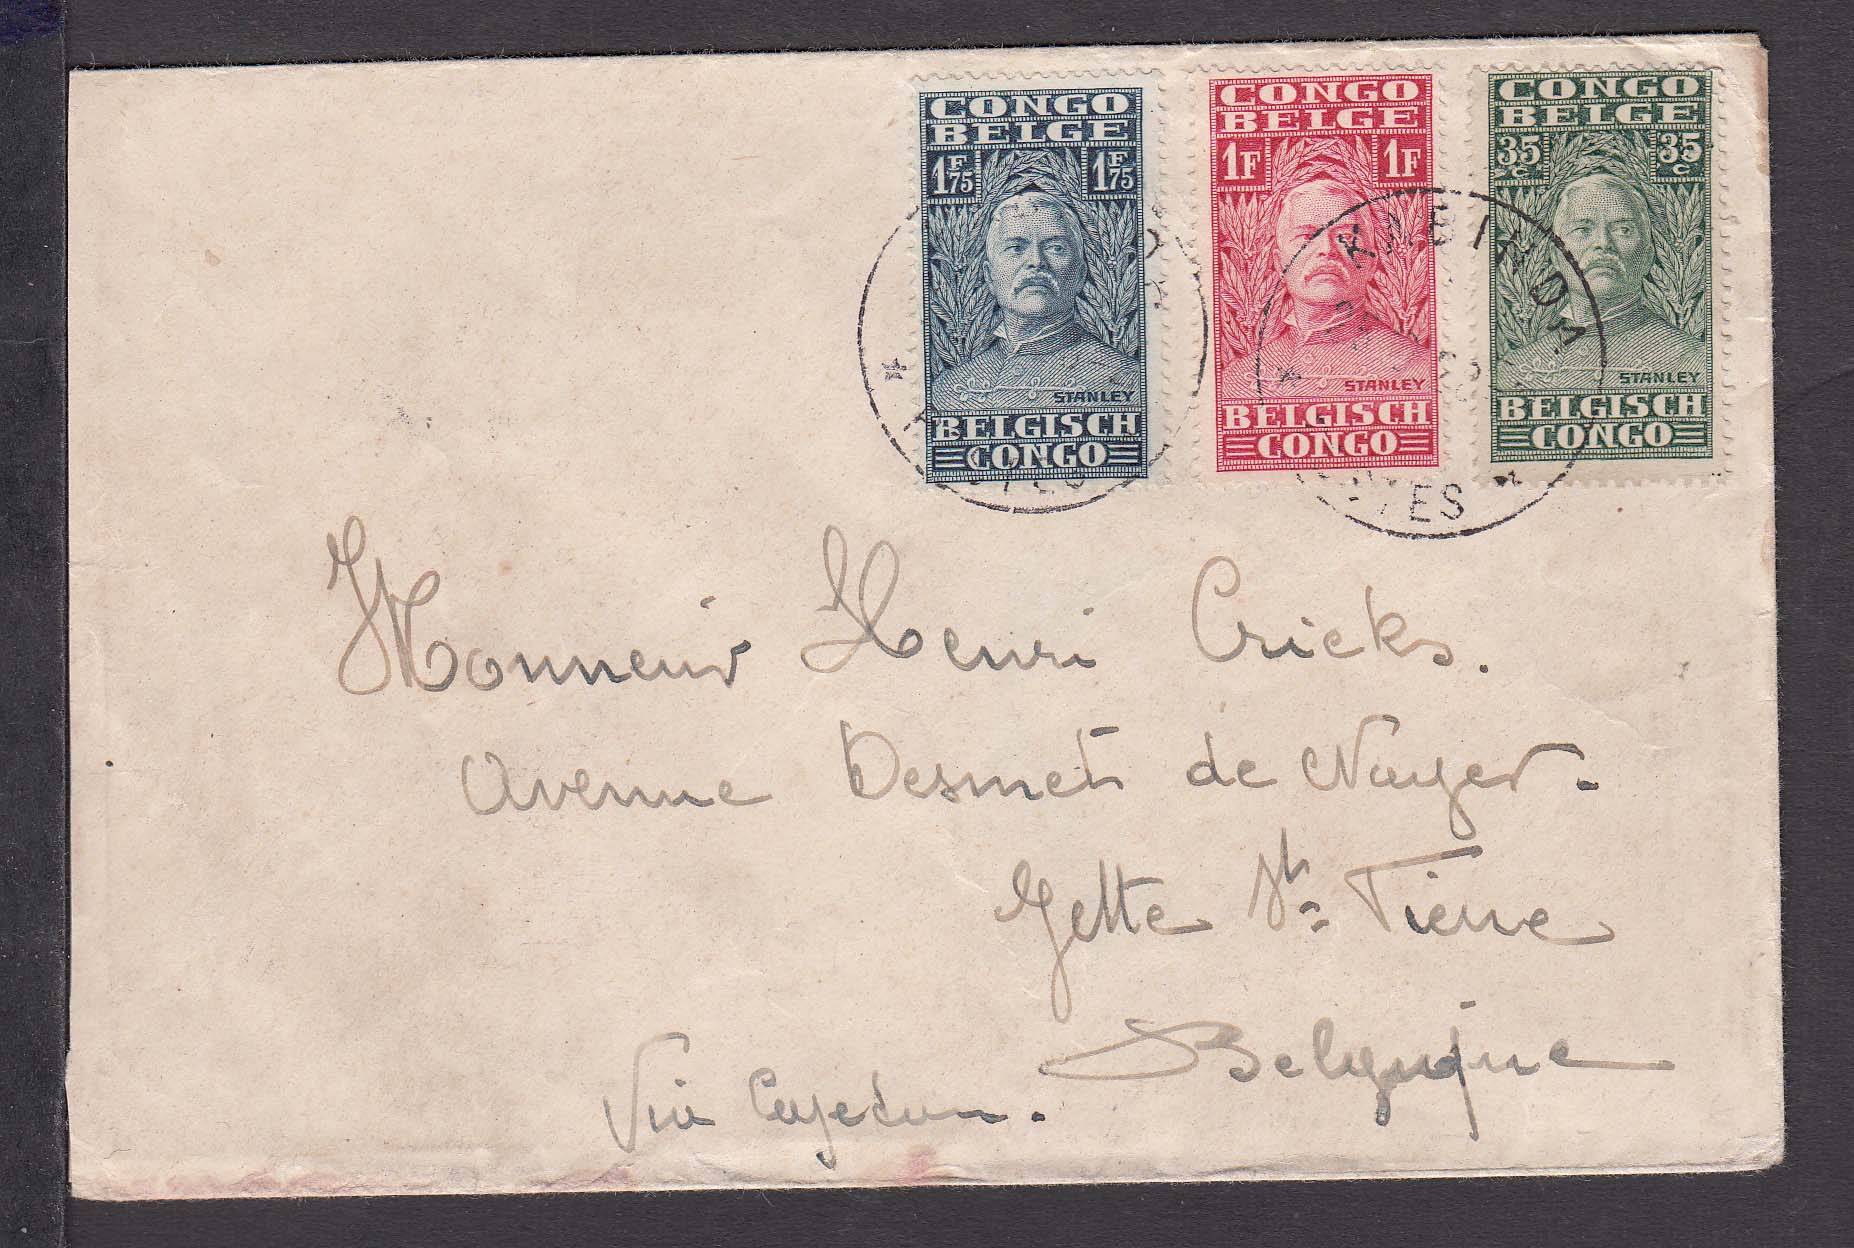 CONGO
BELGE
1F75 1F75
STANLEY
BELGISCH
CONGO
CONGO
BELGE
1F 1F
STANLEY
BELGISCH
CONGO
CONGO
BELGE
35c 35c
STANLEY
BELGISCH
CONGO
KABINDA
Monsieur Henri Cricks.
Avenue Desmet de Nayer.
Jette St. Pierre
Belgique
Via Capetown.